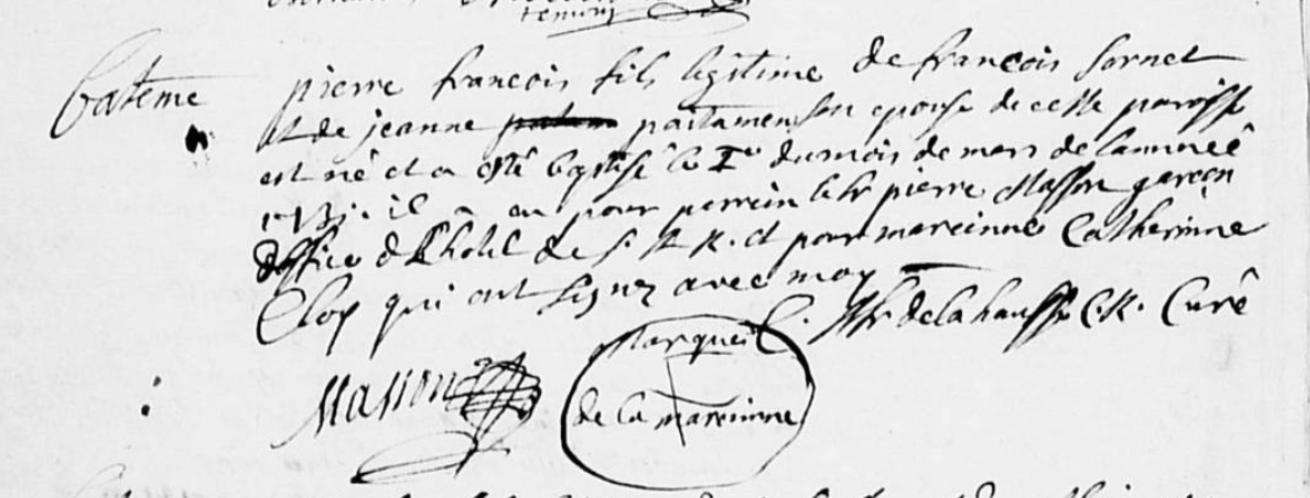 temoin
batême
pierre francois fils legitime de francois sornet
et de jeanne paitamen son epouse de cette paroisse
est né et a esté baptisé le I er du mois de mars de lanneé
il a eu pour perrein le Sr pierre Masson garçon
doffice de Lhotel de S. A. R. et pour mareinne Catherinne
Eloy qui ont signez avec moy
Marque C. de la hausse C. R. Curé
Masson de la mareinne